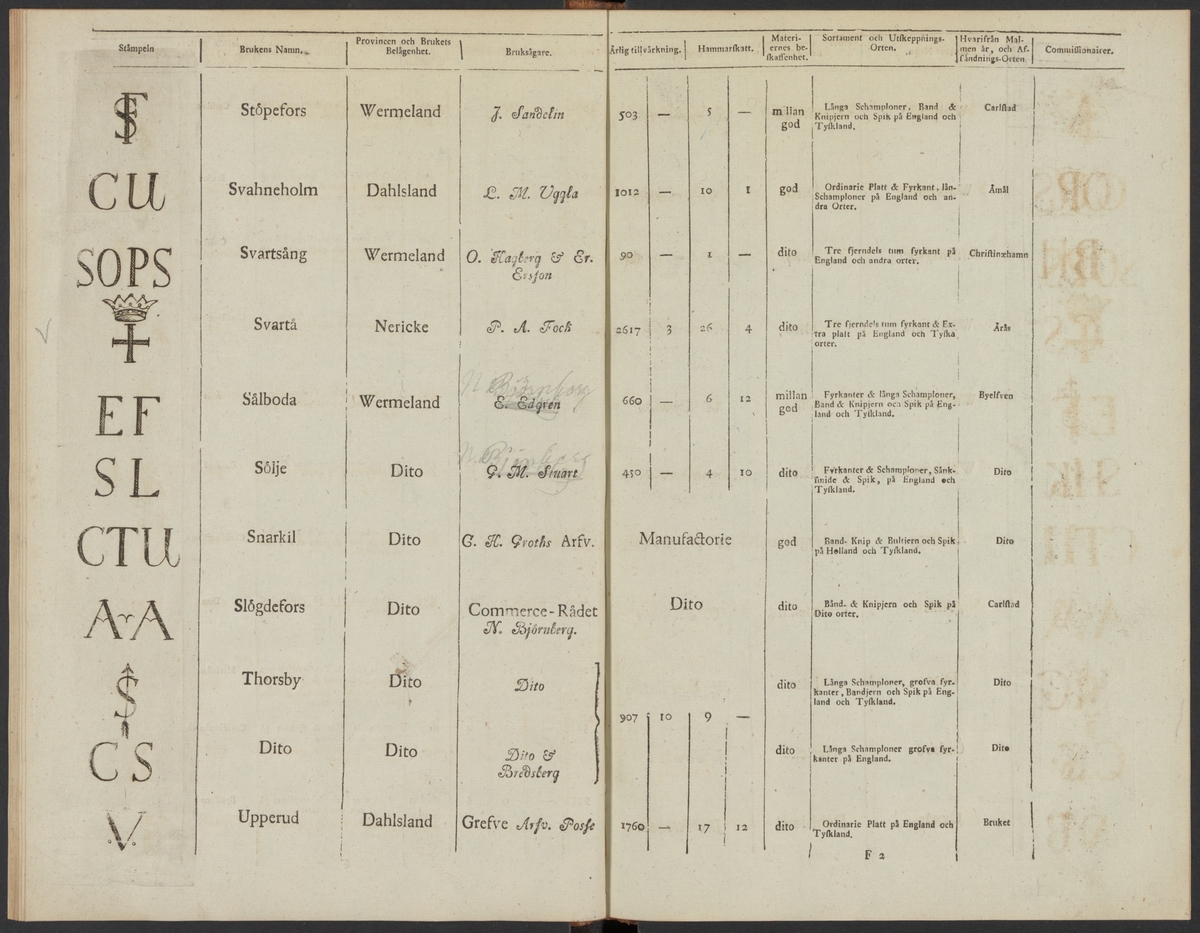 Stämpeln | Brukens Namn. | Provincen och Brukets Belägenhet. | Bruksägare. | Årlig tillvärkning. | Hammarſkatt. | Materiernes beſkaffenhet. | Sortament och Utſkeppnings-Orten. | Hvarifrån Malmen är, och Afſändnings-Orten. | Commiſſionairer.
SF | Stöpefors | Wermeland | J. Sandelin | 503 — | 5 — | millan god | Långa Schamploner, Band & Knipjern och Spik på England och Tyſkland. | Carlſtad
CU | Svahneholm | Dahlsland | L. M. Uggla | 1012 — | 10 1 | god | Ordinarie Platt & Fyrkant, lån-Schamploner på England och andra Orter. | Åmål
SOPS | Svartsång | Wermeland | O. Hagberg & Er. Ersſon | 90 — | 1 — | dito | Tre fjerndels tum fyrkant på England och andra orter. | Chriſtinæhamn
Svartå | Nericke | P. A. Fock | 2617 3 | 26 4 | dito | Tre fjerndels tum fyrkant & Extra platt på England och Tyſka orter. | Årås
EF | Sålboda | Wermeland | N. Björnberg E. Edgren | 660 — | 6 12 | millan god | Fyrkanter & långa Schamploner, Band & Knipjern och Spik på England och Tyſkland. | Byelfven
SL | Sölje | Dito | N. Björnberg G. M. Stuart | 450 — | 4 10 | dito | Fyrkanter & Schamploner, Sänkſmide & Spik, på England och Tyſkland. | Dito
CTU | Snarkil | Dito | C. H. Groths Arfv. | Manufactorie | god | Band- Knip & Bultjern och Spik på Holland och Tyſkland. | Dito
AvA | Slögdefors | Dito | Commerce-Rådet N. Björnberg. | Dito | dito | Bånd- & Knipjern och Spik på Dito orter. | Carlſtad
Thorsby | Dito | Dito | dito | Långa Schamploner, grofva fyrkanter, Bandjern och Spik på England och Tyſkland. | Dito
907 10 | 9 —
CS | Dito | Dito | Dito & Bredsberg | dito | Långa Schamploner grofva fyrkanter på England. | Dito
.V. | Upperud | Dahlsland | Grefve Arfv. Posſe | 1760 — | 17 12 | dito | Ordinarie Platt på England och Tyſkland. | Bruket
F 2